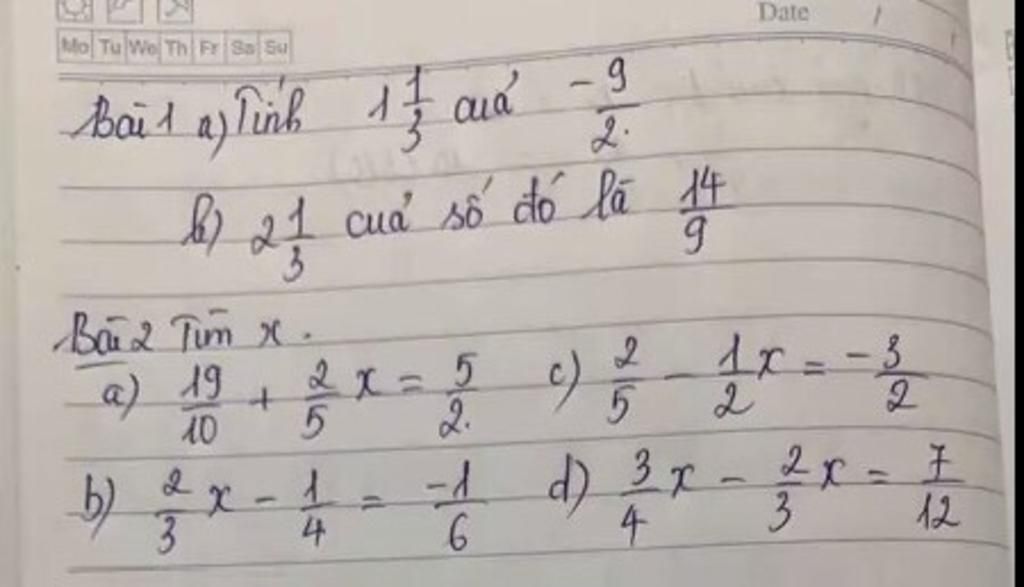 Date / /
Mo Tu We Th Fr Sa Su
Bài 1 a) Tính 1 1/3 của -9/2.
b) 2 1/3 của số đó là 14/9
Bài 2 Tìm x.
a) 19/10 + 2/5 x = 5/2. c) 2/5 - 1/2 x = -3/2
b) 2/3 x - 1/4 = -1/6 d) 3/4 x - 2/3 x = 7/12